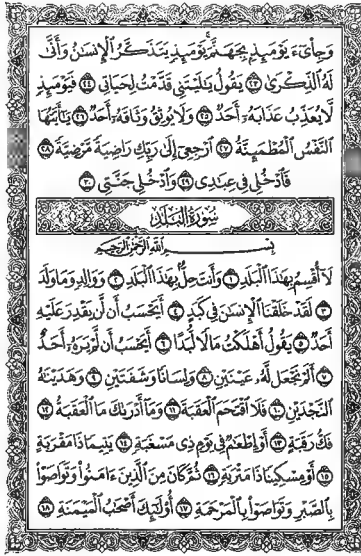 وَجِاْىٓءَ يَوْمَئِذِۭ بِجَهَنَّمَۚ يَوْمَئِذٍ يَتَذَكَّرُ ٱلْإِنسَٰنُ وَأَنَّىٰ
لَهُ ٱلذِّكْرَىٰ ٢٣ يَقُولُ يَٰلَيْتَنِى قَدَّمْتُ لِحَيَاتِى ٢٤ فَيَوْمَئِذٍ
لَّا يُعَذِّبُ عَذَابَهُۥٓ أَحَدٌ ٢٥ وَلَا يُوثِقُ وَثَاقَهُۥٓ أَحَدٌ ٢٦ يَٰٓأَيَّتُهَا
ٱلنَّفْسُ ٱلْمُطْمَئِنَّةُ ٢٧ ٱرْجِعِىٓ إِلَىٰ رَبِّكِ رَاضِيَةً مَّرْضِيَّةً ٢٨
فَٱدْخُلِى فِى عِبَٰدِى ٢٩ وَٱدْخُلِى جَنَّتِى ٣٠
سُورَةُ الْبَلَدِ
بِسْمِ ٱللَّهِ ٱلرَّحْمَٰنِ ٱلرَّحِيمِ
لَآ أُقْسِمُ بِهَٰذَا ٱلْبَلَدِ ١ وَأَنتَ حِلٌّۢ بِهَٰذَا ٱلْبَلَدِ ٢ وَوَالِدٍ وَمَا وَلَدَ
٣ لَقَدْ خَلَقْنَا ٱلْإِنسَٰنَ فِى كَبَدٍ ٤ أَيَحْسَبُ أَن لَّن يَقْدِرَ عَلَيْهِ
أَحَدٌ ٥ يَقُولُ أَهْلَكْتُ مَالًا لُّبَدًا ٦ أَيَحْسَبُ أَن لَّمْ يَرَهُۥٓ أَحَدٌ
٧ أَلَمْ نَجْعَل لَّهُۥ عَيْنَيْنِ ٨ وَلِسَانًا وَشَفَتَيْنِ ٩ وَهَدَيْنَٰهُ
ٱلنَّجْدَيْنِ ١٠ فَلَا ٱقْتَحَمَ ٱلْعَقَبَةَ ١١ وَمَآ أَدْرَىٰكَ مَا ٱلْعَقَبَةُ ١٢
فَكُّ رَقَبَةٍ ١٣ أَوْ إِطْعَٰمٌ فِى يَوْمٍ ذِى مَسْغَبَةٍ ١٤ يَتِيمًا ذَا مَقْرَبَةٍ
١٥ أَوْ مِسْكِينًا ذَا مَتْرَبَةٍ ١٦ ثُمَّ كَانَ مِنَ ٱلَّذِينَ ءَامَنُوا۟ وَتَوَاصَوْا۟
بِٱلصَّبْرِ وَتَوَاصَوْا۟ بِٱلْمَرْحَمَةِ ١٧ أُو۟لَٰٓئِكَ أَصْحَٰبُ ٱلْمَيْمَنَةِ ١٨